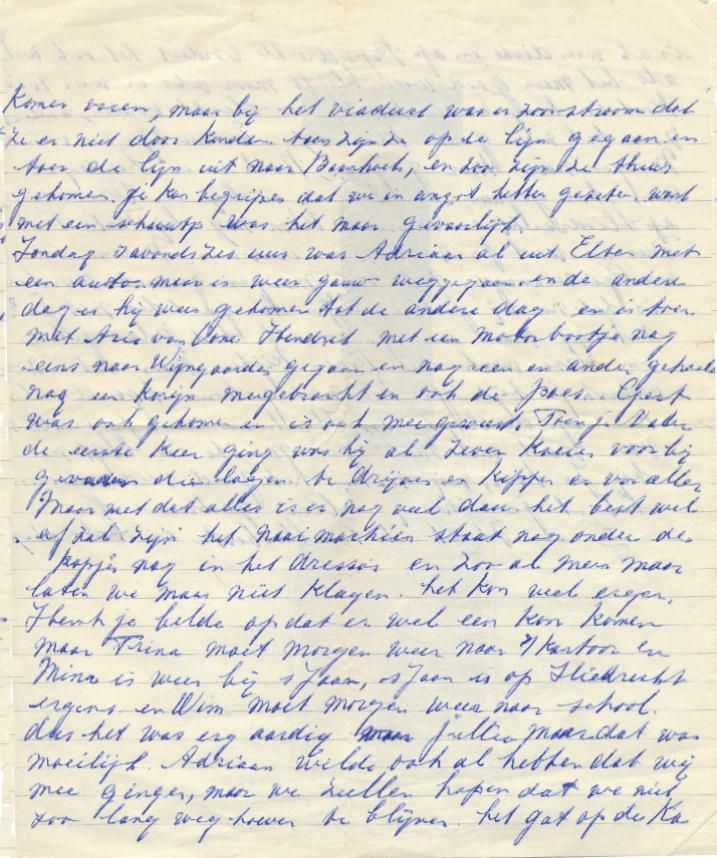 Komen varen, maar bij het viaduct was er zoon stroom dat
ze er niet door konden toen zijn ze op de lijn gegaan en
toen de lijn uit naar Baanhoek, en zoo zijn ze thuis
gekomen. Je kan begrijpen dat we in angst hebben gezeten want
met een schuutje was het maar gevaarlijk.
Zondag savonds zes uur was Adriaan al uit Elten met
een auto maar is weer gauw weggegaan en de andere
dag is hij weer gekomen tot de andere dag en is toen
met Arie van Oome Hendrik met een motorbootje nog
eens naar Wijngaarden gegaan en nog een en ander gehaald
nog een konijn meegebracht en ook de poes. Evert
was ook gekomen en is ook mee geweest. Toen je Vader
de eerste keer ging was hij al zeven koeien voorbij
gevaren die lagen te drijven en kippen en van alles
Maar met dit alles is er nog veel daar het best wel
af zal zijn het naaimachien staat nog onder de
kopjes nog in het dressoir en zoo al meer maar
laten we maar niet klagen. het kon veel erger.
Henk je belde op dat er wel een kon komen
maar Trina moet morgen weer naar 't Kantoor en
Mina is weer bij sJaan, sJaan is op Sliedrecht
ergens en Wim moet morgen weer naar school.
dus het was erg aardig jullie maar dat was
moeilijk. Adriaan wilde ook al hebben dat wij
mee gingen, maar we zullen hopen dat we niet
zoo lang weg hoeven te blijven. het gat op de Ka